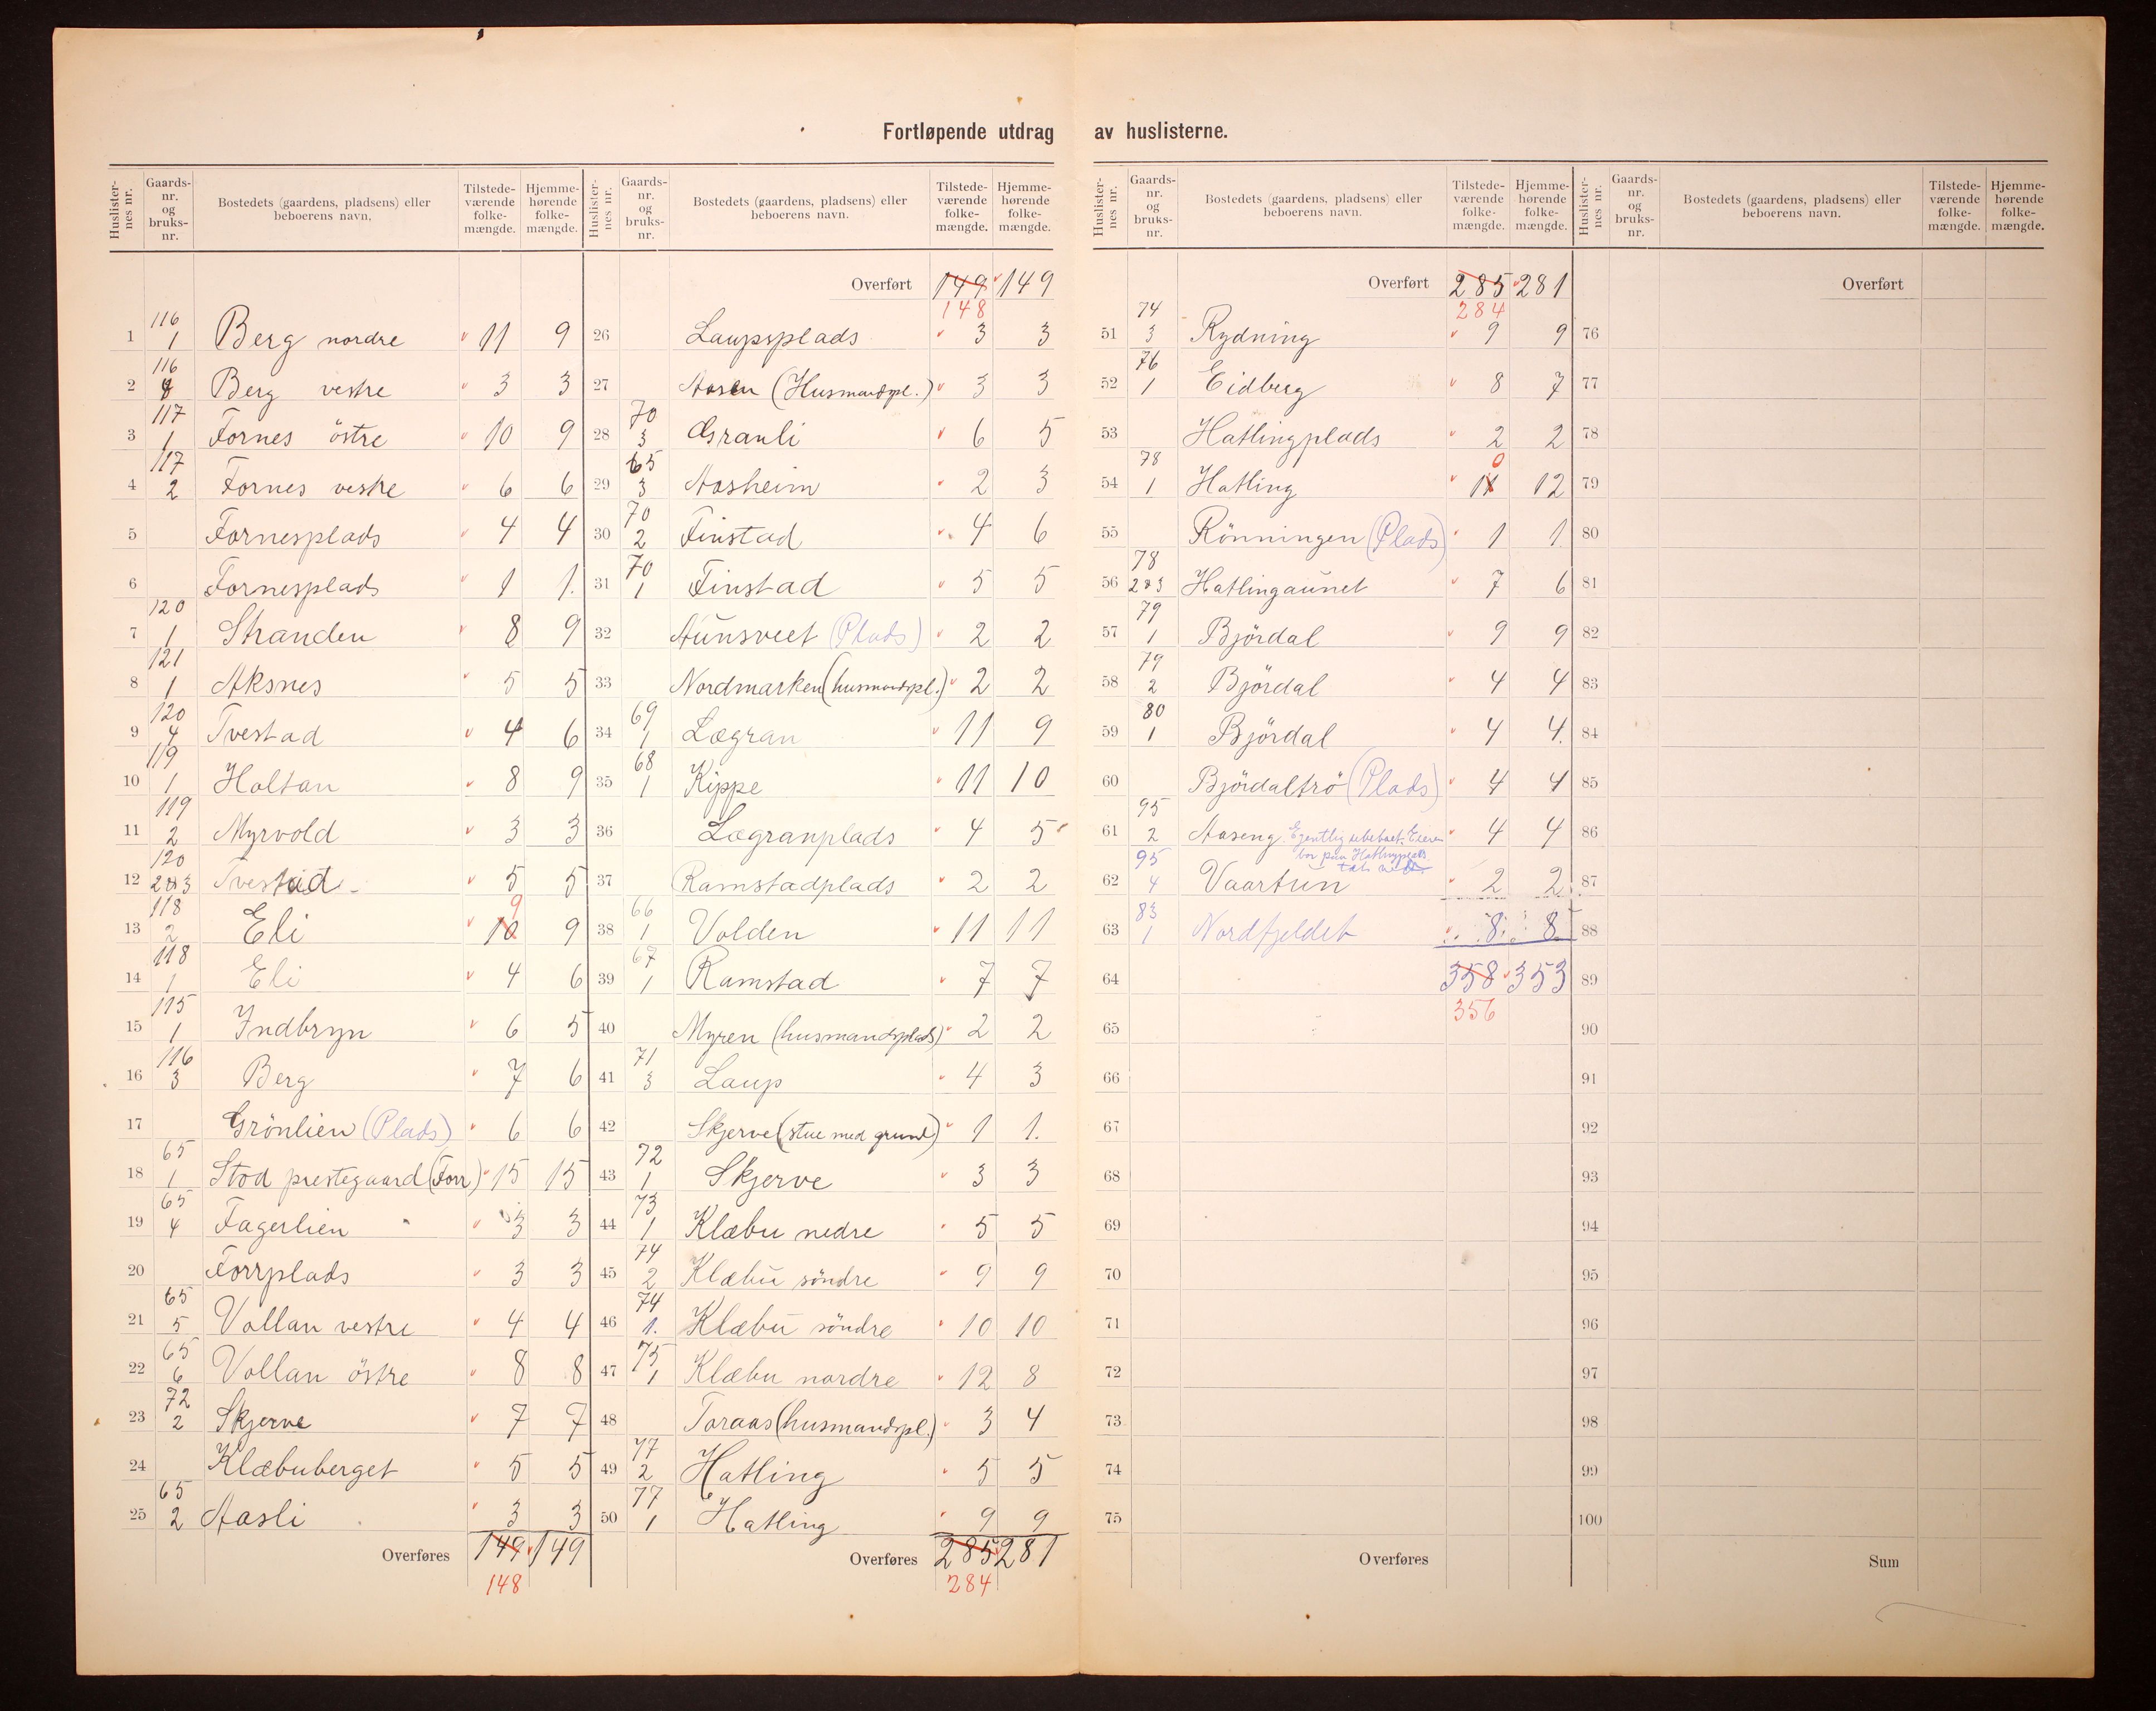 Fortløpende utdrag av huslisterne.
Huslister-nes nr. | Gaards-nr. og bruks-nr. | Bostedets (gaardens, pladsens) eller beboerens navn. | Tilstede-værende folke-mængde. | Hjemme-hørende folke-mængde.
1 116/1 Berg nordre 11 9
2 116/ Berg vestre 3 3
3 117/1 Fornes östre 10 9
4 117/2 Fornes vestre 6 6
5 Fornesplads 4 4
6 Fornesplads 1 1.
7 120/1 Stranden 8 9
8 121/1 Aksnes 5 5
9 120/4 Tvestad 4 6
10 119/1 Holtan 8 9
11 119/2 Myrvold 3 3
12 120/2&3 Tvestad 5 5
13 118/2 Eli 10 9 9
14 118/1 Eli 4 6
15 115/1 Indbryn 6 5
16 116/3 Berg 7 6
17 Grönlien (Plads) 6 6
18 65/1 Stod prestegaard (Forr) 15 15
19 65/4 Fagerlien " 3 3
20 Forrplads 3 3
21 65/5 Vollan vestre 4 4
22 65/6 Vollan östre 8 8
23 72/2 Skjerve 7 7
24 Klæbuberget 5 5
25 65/2 Aasli 3 3
Overføres 149 149
148
Huslister-nes nr. | Gaards-nr. og bruks-nr. | Bostedets (gaardens, pladsens) eller beboerens navn. | Tilstede-værende folke-mængde. | Hjemme-hørende folke-mængde.
Overført 149 149
148
26 Laupsplads 3 3
27 Aasen (Husmandspl.) 3 3
28 70/3 Granli 6 5
29 65/3 Aasheim 2 3
30 70/2 Finstad 4 6
31 70/1 Finstad 5 5
32 Aunsveet (Plads) 2 2
33 Nordmarken (husmandspl.) 2 2
34 69/1 Lægran 11 9
35 68/1 Kippe 11 10
36 Lægranplads 4 5
37 Ramstadplads 2 2
38 66/1 Volden 11 11
39 67/1 Ramstad 7 7
40 Myren (husmandsplads) 2 2
41 71/3 Laup 4 3
42 Skjerve (stue med grund) 1 1.
43 72/1 Skjerve 3 3
44 73/1 Klæbu nedre 5 5
45 74/2 Klæbu söndre 9 9
46 74/1. Klæbu söndre 10 10
47 75/1 Klæbu nordre 12 8
48 Toraas (husmandspl.) 3 4
49 77/2 Hatling 5 5
50 77/1 Hatling 9 9
Overføres 285 281
284
Huslister-nes nr. | Gaards-nr. og bruks-nr. | Bostedets (gaardens, pladsens) eller beboerens navn. | Tilstede-værende folke-mængde. | Hjemme-hørende folke-mængde.
Overført 285 281
284
51 74/3 Rydning 9 9
52 76/1 Eidberg 8 7
53 Hatlingplads 2 2
54 78/1 Hatling 11 0 12
55 Rönningen (Plads) 1 1
56 78/2&3 Hatlingaunet 7 6
57 79/1 Björdal 9 9
58 79/2 Björdal 4 4
59 80/1 Björdal 4 4.
60 Björdaltrö (Plads) 4 4
61 95/2 Aaseng. Egentlig ubeboet. Eieren 4 4
bor paa Hatlingplads
62 95/4 Vaartun 2 2
63 83/1 Nordfjeldet 8 8
64 358 353
356
65
66
67
68
69
70
71
72
73
74
75
Overføres
Huslister-nes nr. | Gaards-nr. og bruks-nr. | Bostedets (gaardens, pladsens) eller beboerens navn. | Tilstede-værende folke-mængde. | Hjemme-hørende folke-mængde.
Overført
76
77
78
79
80
81
82
83
84
85
86
87
88
89
90
91
92
93
94
95
96
97
98
99
100
Sum